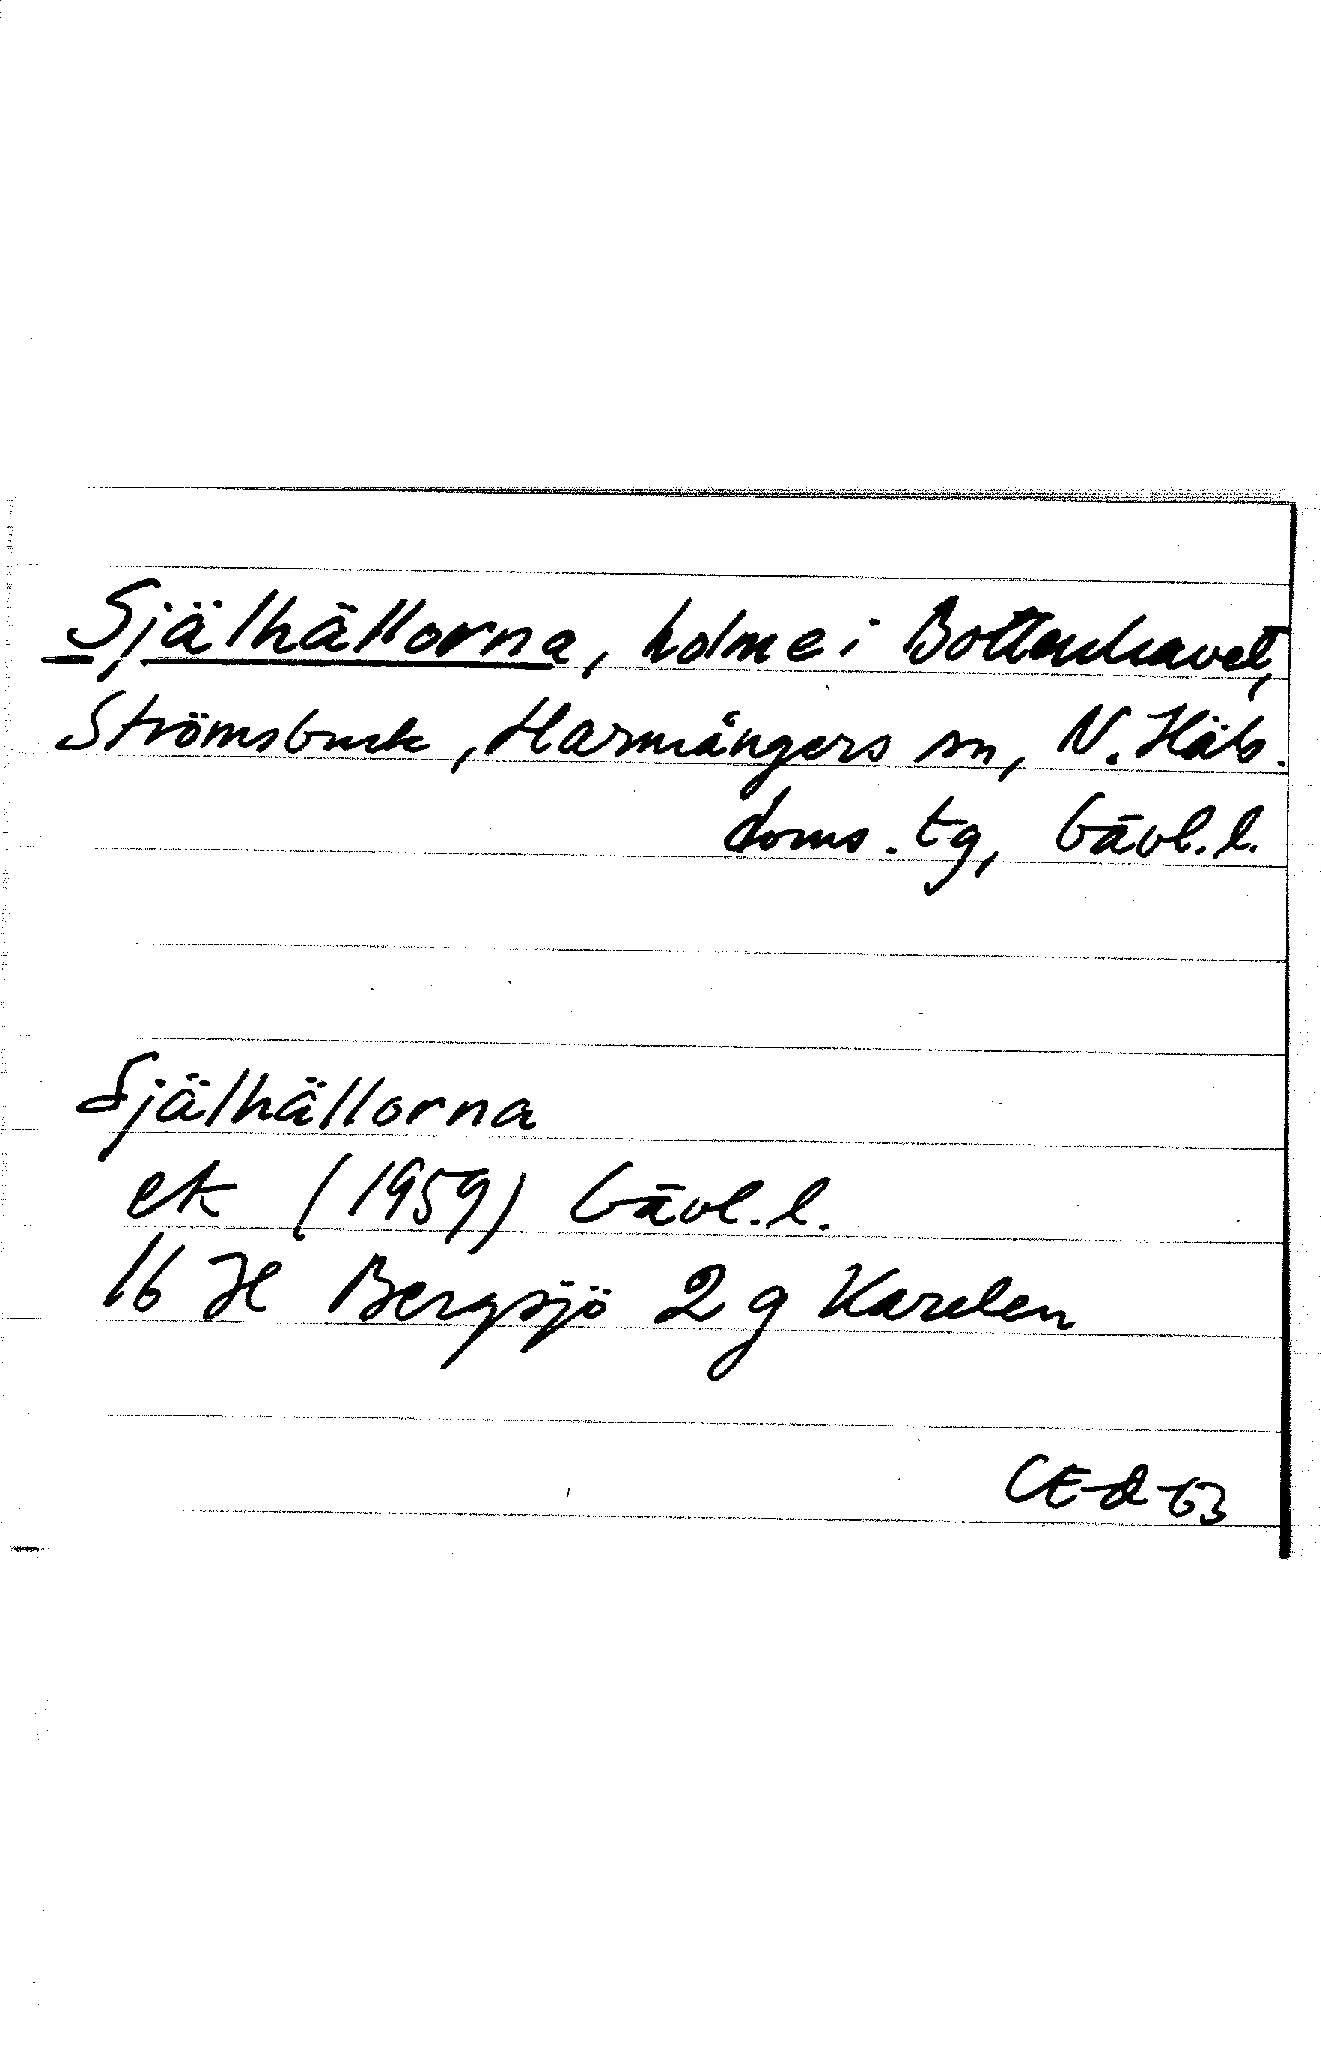 Själhällorna, holme i Bottenhavet,
Strömsbruk, Harmångers sn, N. Häls.
doms. tg, Gävl. l.
Själhällorna
ek (1959) Gävl. l.
16 H Bergsjö 2 g Karelen
CE-d-63